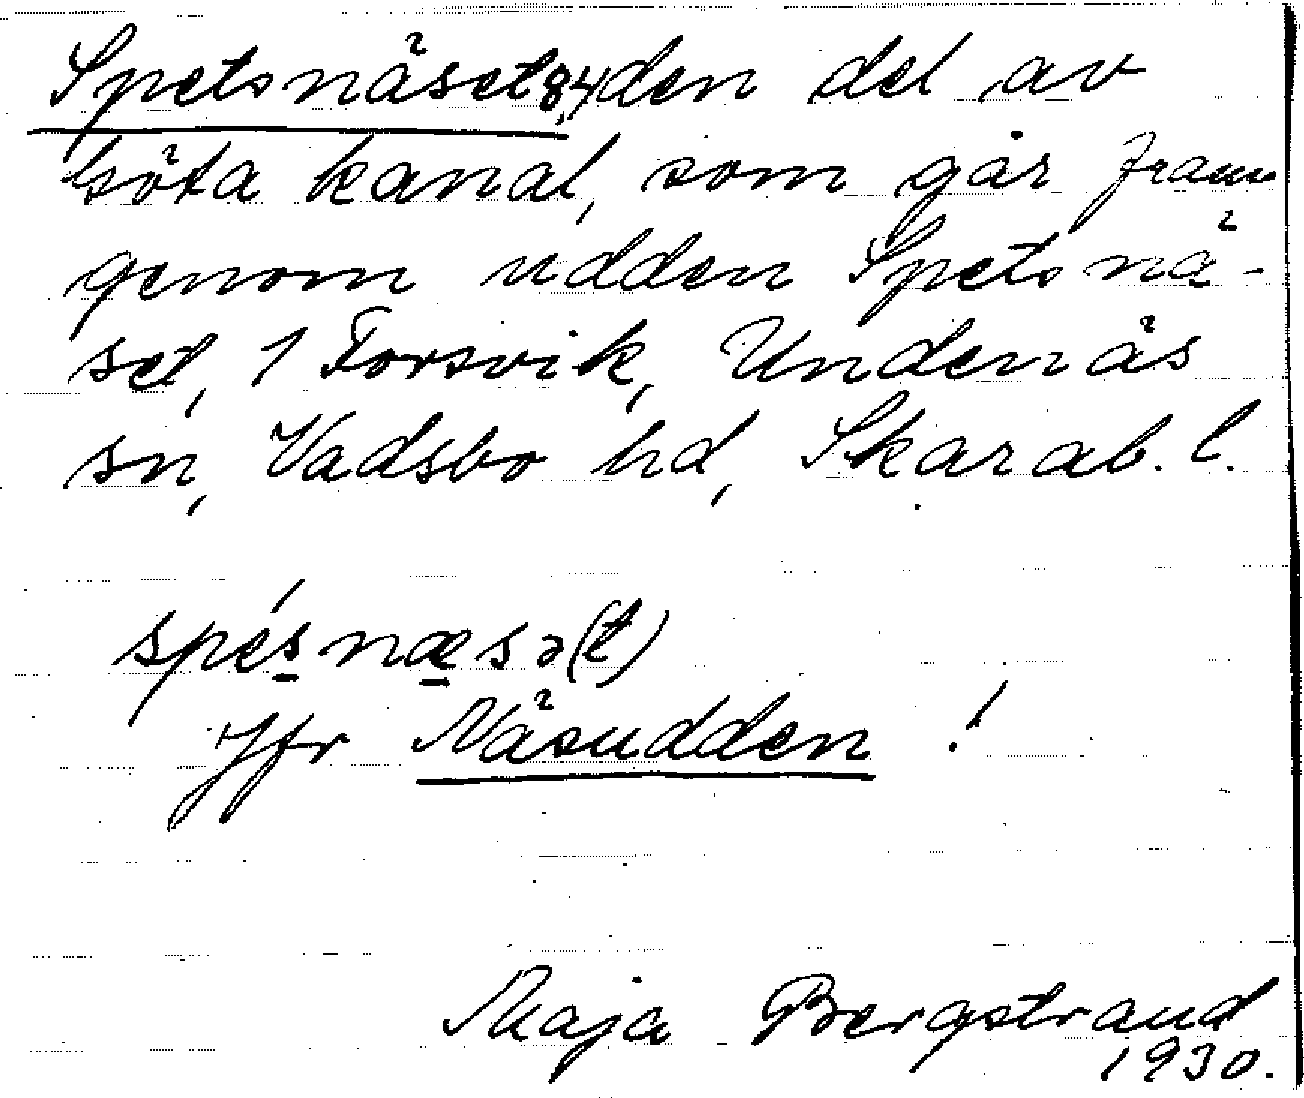 Spetsnäset, 84, den del av
Göta kanal, som går fram
genom udden Spetsnä-
set, 1 Forsvik, Undenäs
sn, Vadsbo hd, Skarab. l.
spésnæsə(t)
Jfr Näsudden !
Maja Bergstrand
1930.